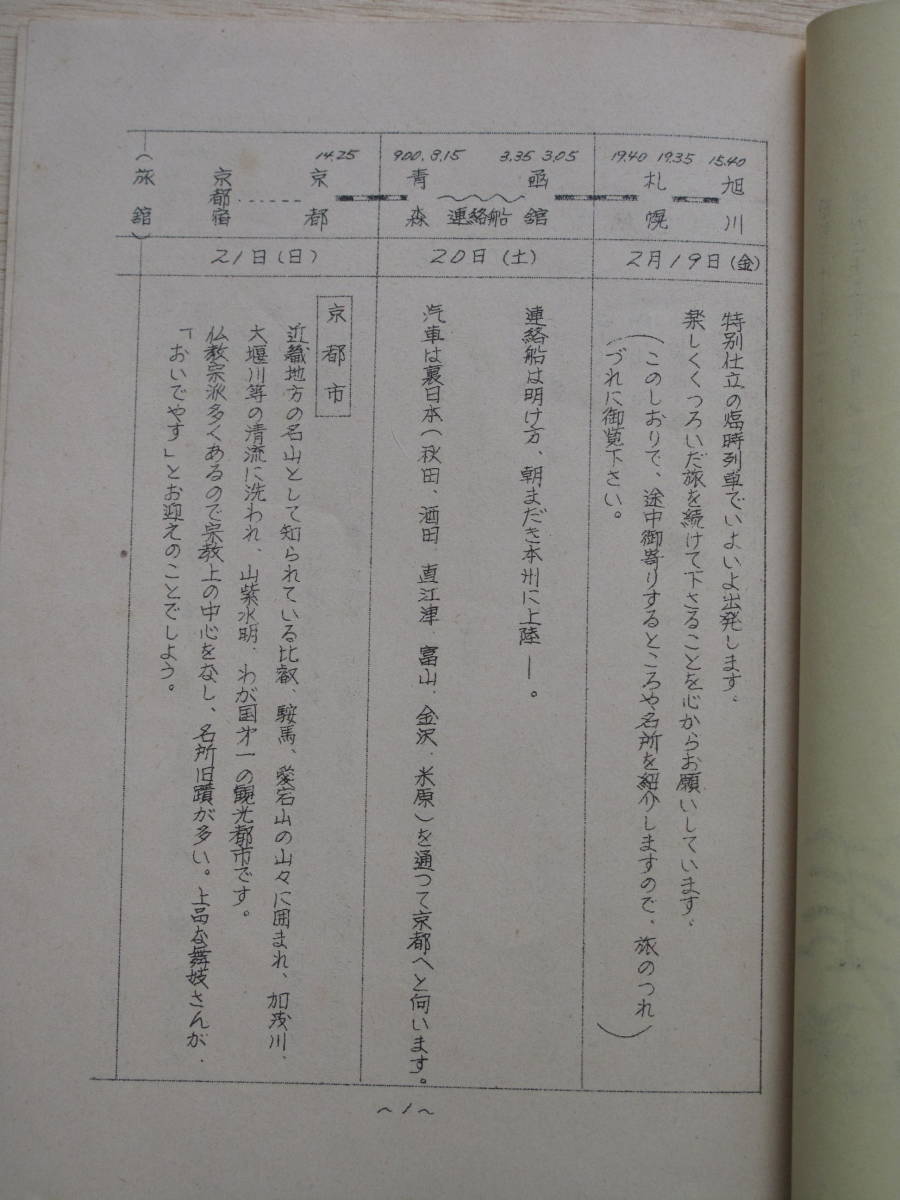 15.40
旭川
19.35
19.40
札幌
2月19日(金)
特別仕立の臨時列車でいよいよ出発します.
楽しくくつろいだ旅を続けて下さることを心からお願いしています.
(このしおりで、途中御寄りするところや、名所を紹介しますので、旅のつれ
づれに御覧下さい。)
3.05
3.35
函館
連絡船
8.15
9.00
青森
20日(土)
連絡船は明け方、朝まだき本州に上陸―。
汽車は裏日本(秋田、酒田、直江津、富山、金沢、米原)を通つて京都へと向います。
14.25
京都
京都宿
(旅館)
21日(日)
京都市
近畿地方の名山として知られている比叡、鞍馬、愛宕山の山々に囲まれ、加茂川、
大堰川等の清流に洗われ、山紫水明、わが国才一の観光都市です。
仏教宗派多くあるので宗教上の中心をなし、名所旧蹟が多い。上品な舞妓さんが、
「おいでやす」とお迎えのことでしよう。
~1~